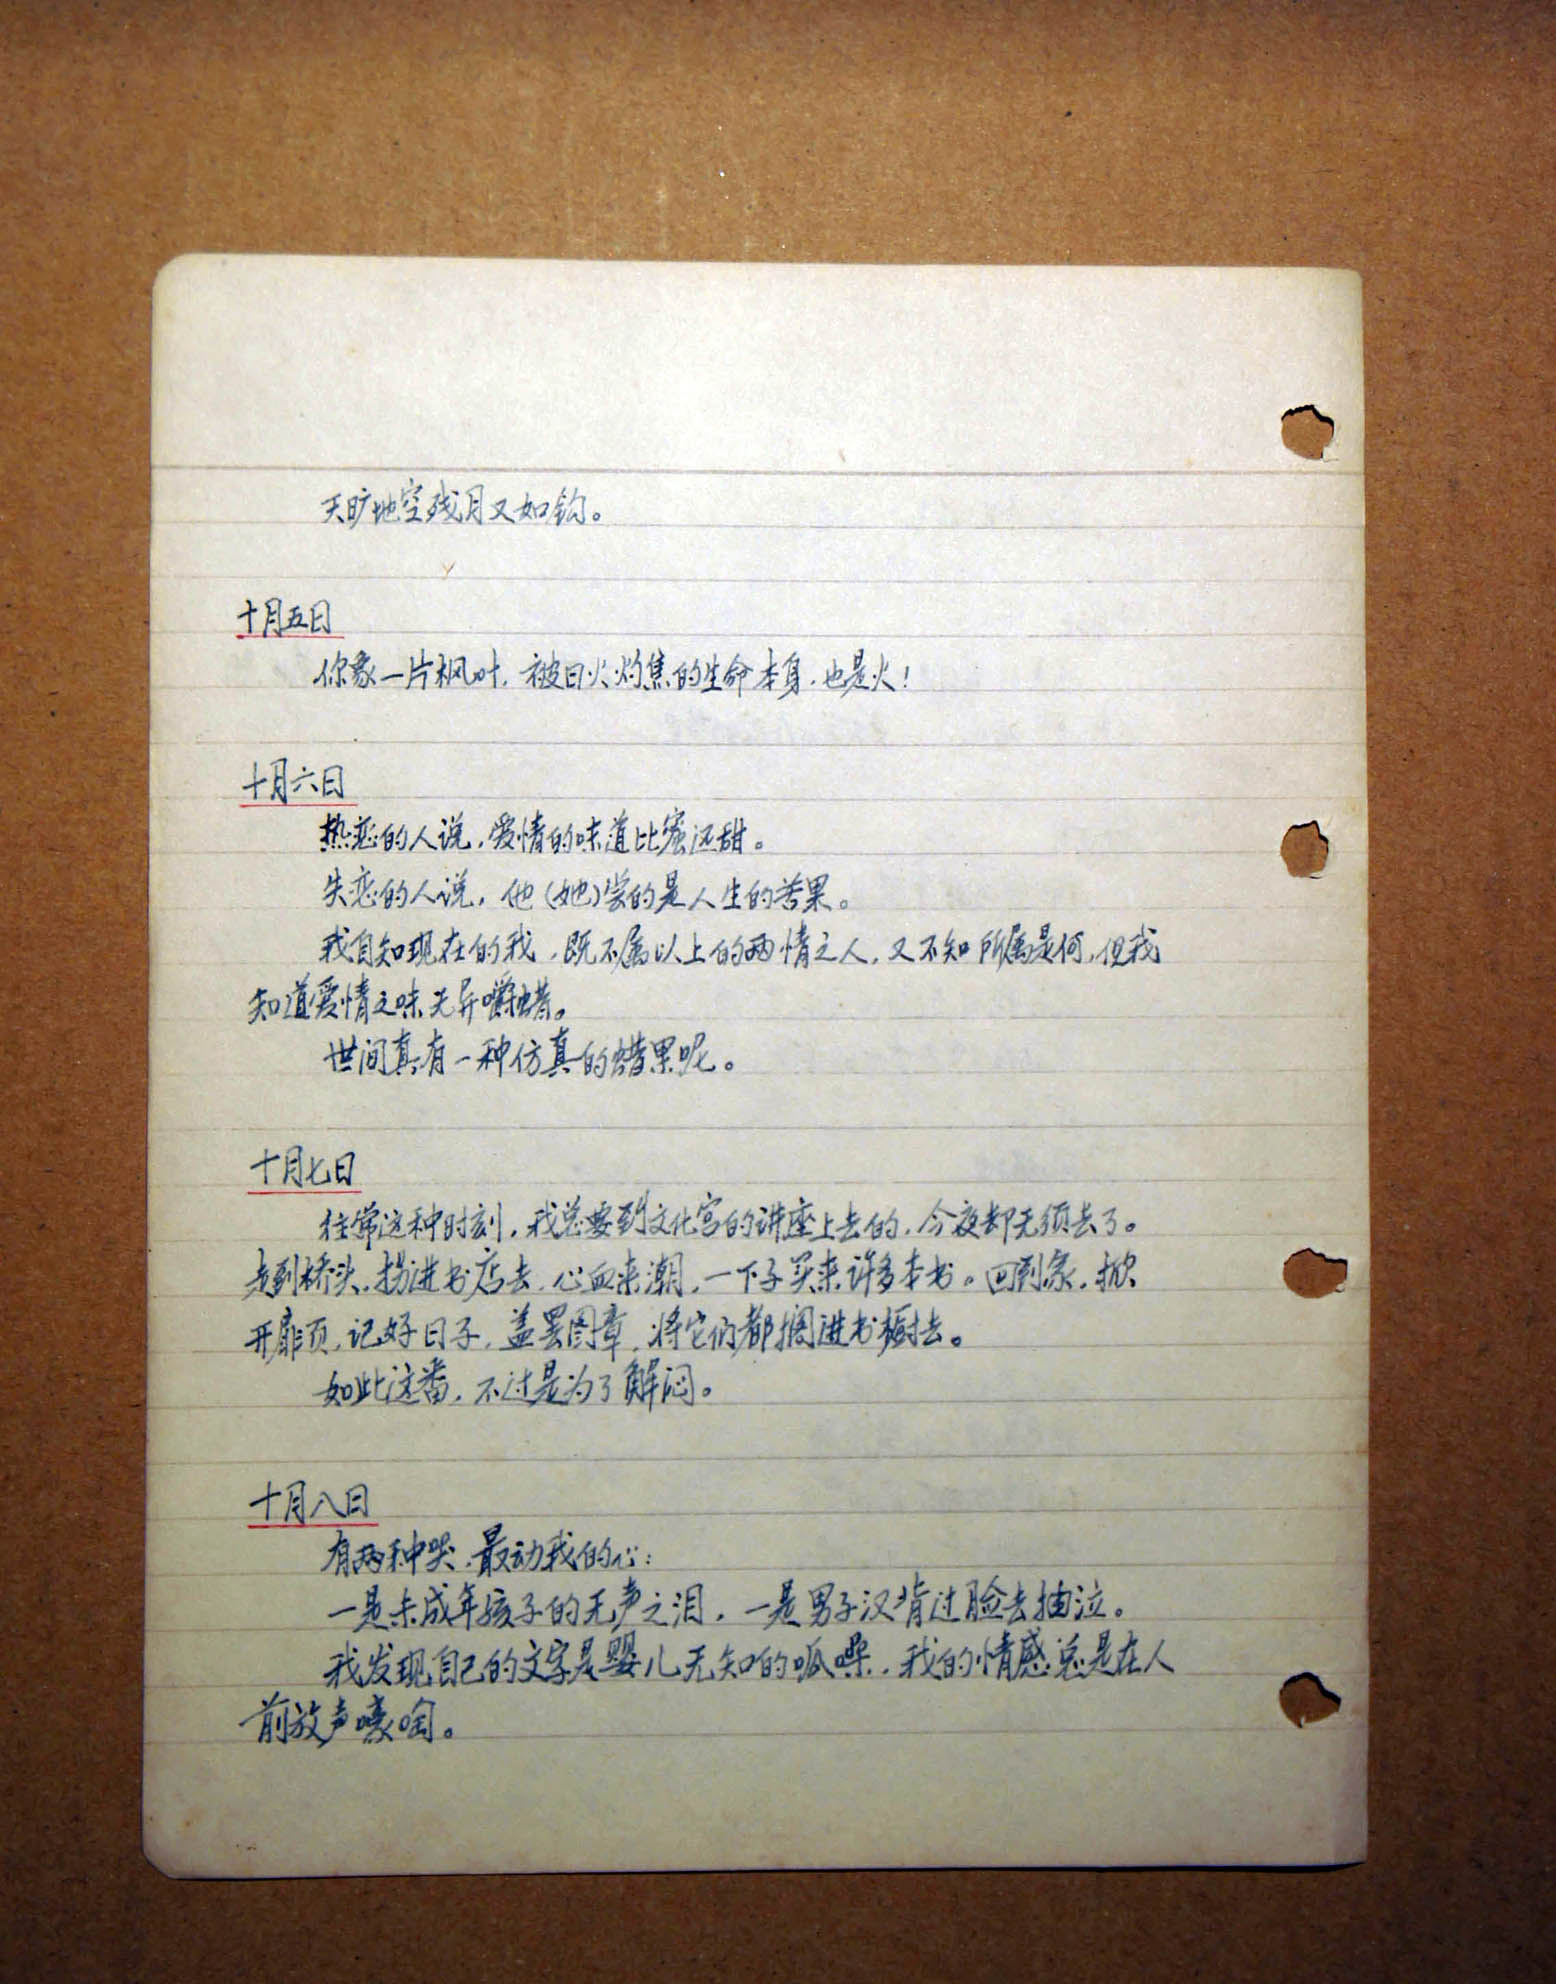 天旷地空残月又如钩。
十月五日
你象一片枫叶，被日火灼焦的生命本身，也是火！
十月六日
热恋的人说，爱情的味道比蜜还甜。
失恋的人说，他（她）尝的是人生的苦果。
我自知现在的我，既不属以上的两情之人，又不知所属是何，但我
知道爱情之味无异嚼蜡。
世间真有一种仿真的蜡果呢。
十月七日
往常这种时刻，我总要到文化宫的讲座上去的，今夜却无须去了。
走到桥头，拐进书店去，心血来潮，一下子买来许多本书。回到家，掀
开扉页，记好日子，盖罢图章，将它们都搁进书橱去。
如此这番，不过是为了解闷。
十月八日
有两种哭，最动我的心：
一是未成年孩子的无声之泪，一是男子汉背过脸去抽泣。
我发现自己的文字是婴儿无知的呱噪，我的情感总是在人
前放声嚎啕。